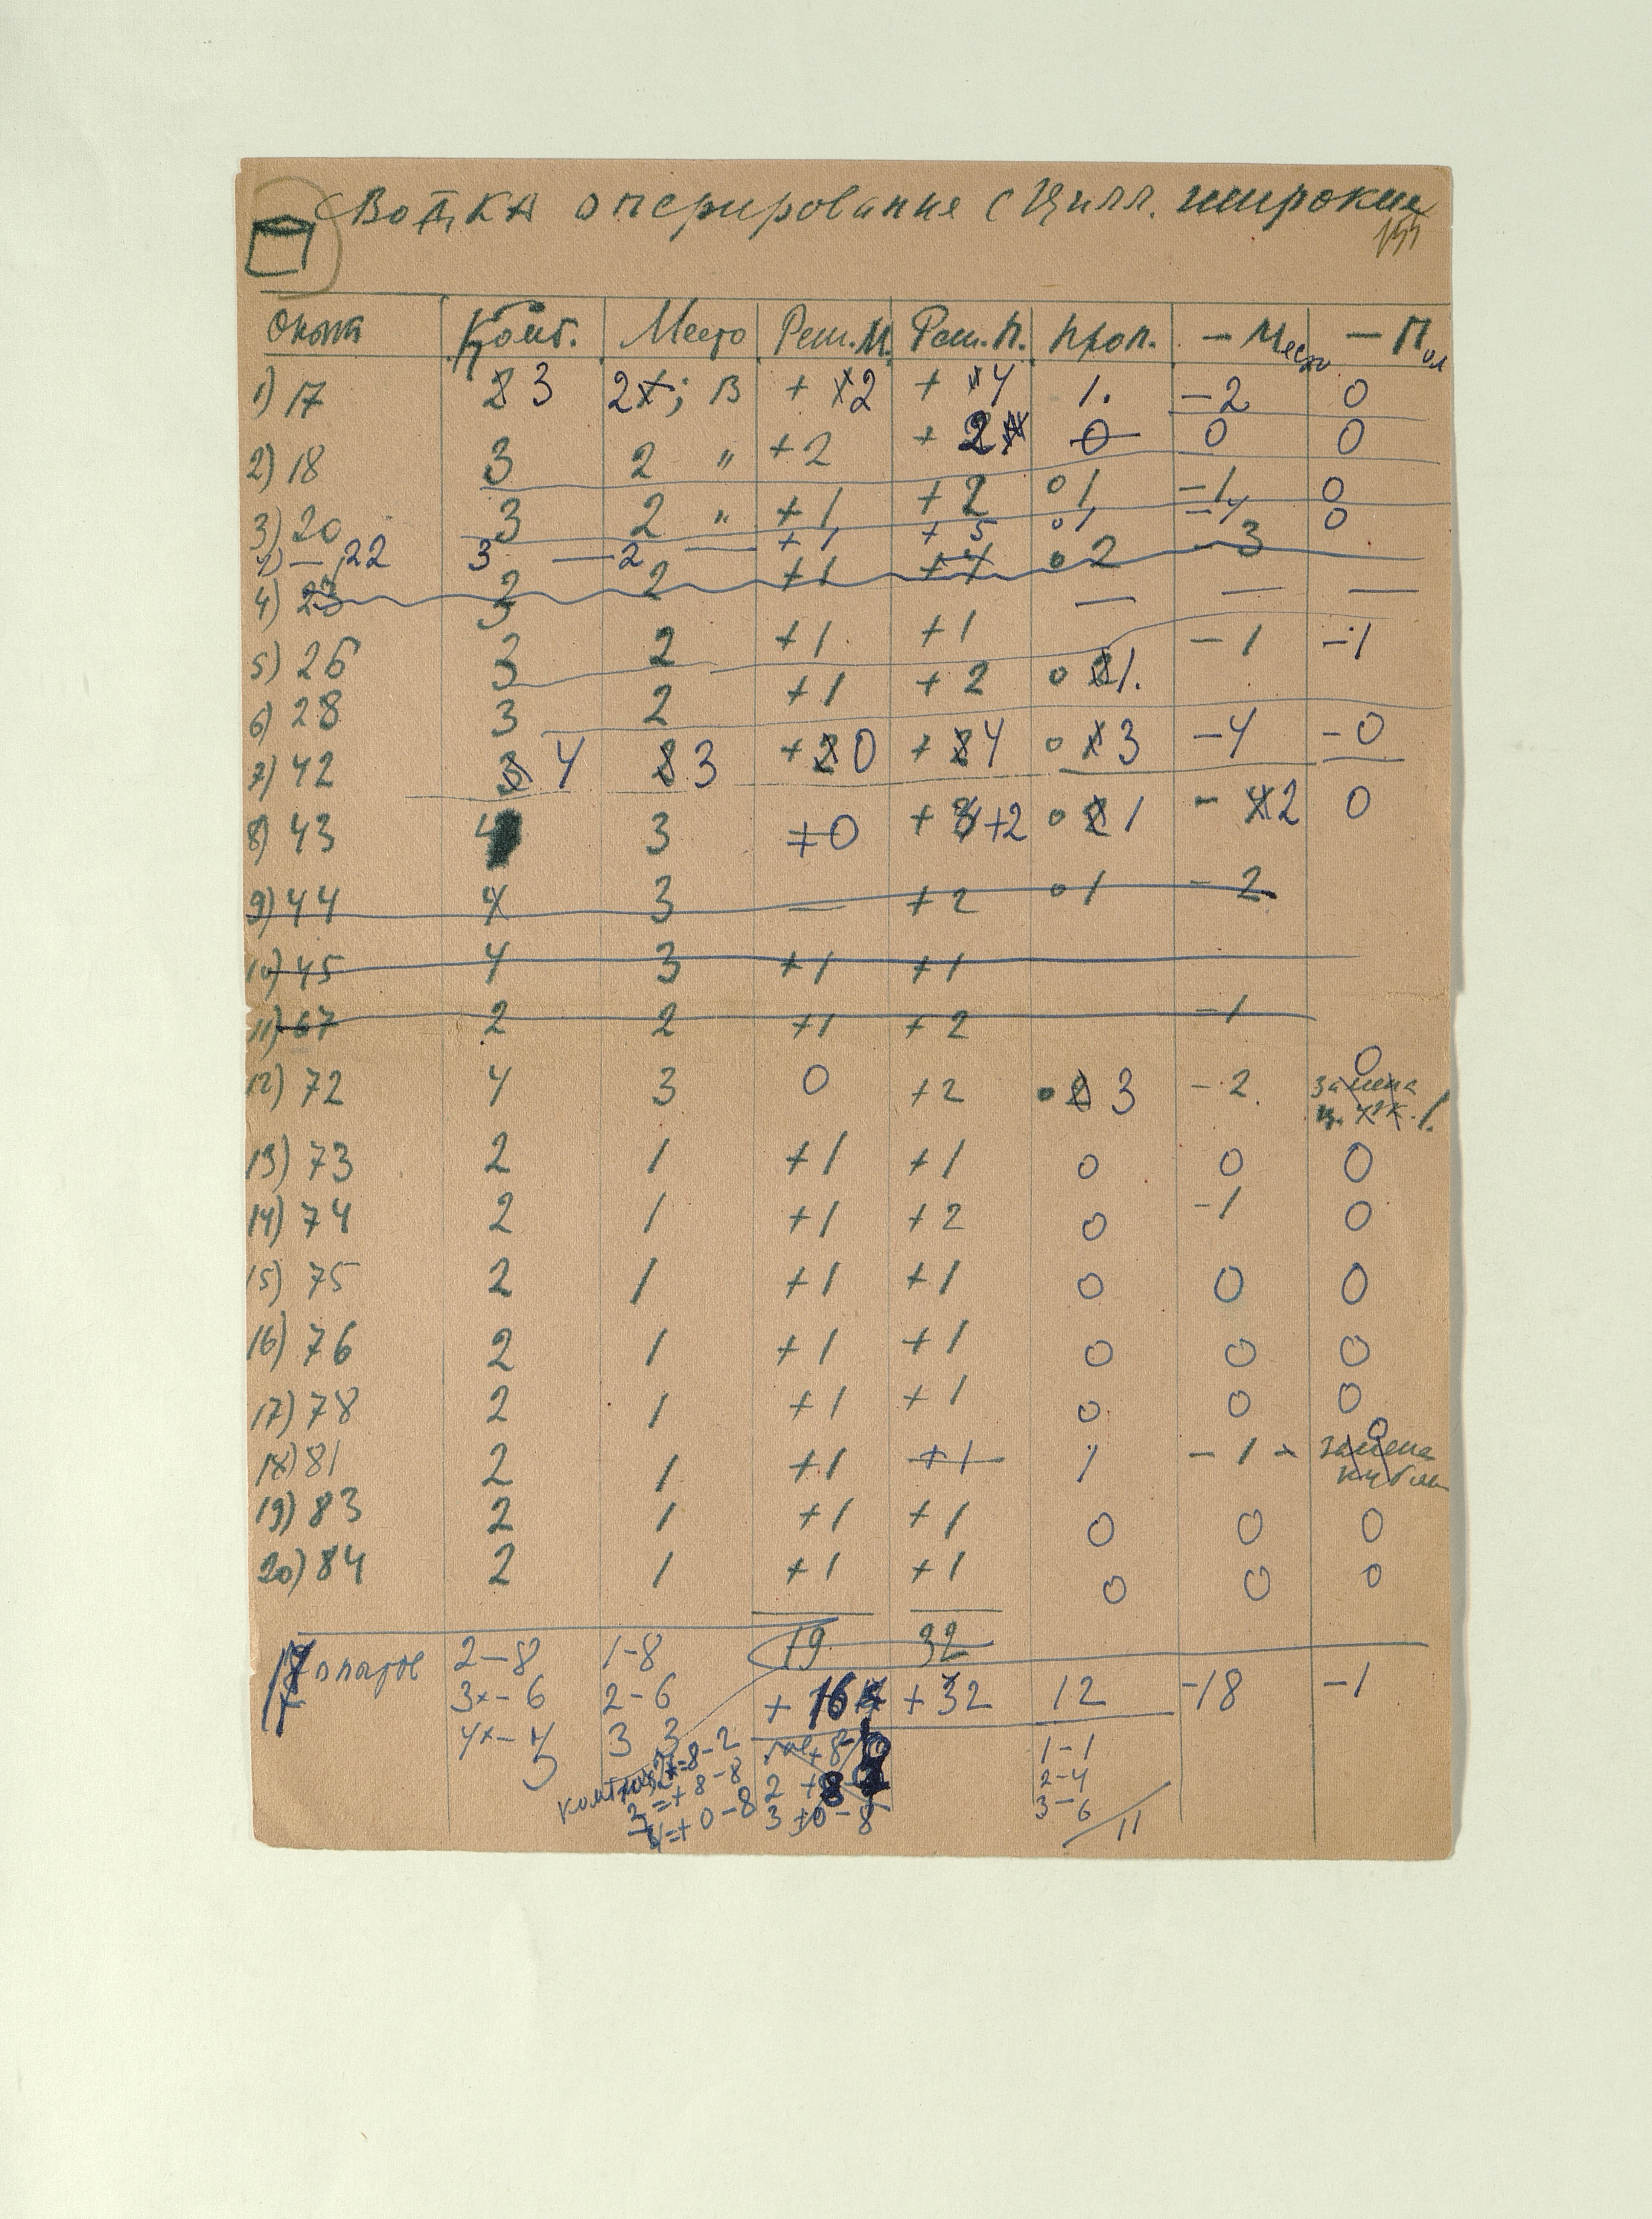 Сводка оперирования с Цилл. широкие
Опыт Комб. Место Реш. М. Реш. П. Проп. — Место — Пол
1) 17 3 2х; В + 2 + 4 1. — 2 0
2) 18 3 2 " + 2 + 2 0 0 0
3) 20 3 2 " + 1 + 2 0 1 — 1 0
— 22 3 — 2 — + 1 + 5 0 1 — 4 0
4) 23 2 2 + 1 + 4 0 2 — 3
5) 26 3 2 + 1 + 1 — 1 — 1
6) 28 3 2 + 1 + 2 0 1.
7) 42 4 3 + 0 + 4 0 3 — 4 — 0
8) 43 4 3 + 0 + 2 0 1 — 2 0
9) 44 4 3 — + 2 0 1 — 2
10) 45 4 3 + 1 + 1
11) 67 2 2 + 1 + 2 — 1
12) 72 4 3 0 + 2 3 — 2 0 замена
13) 73 2 1 + 1 + 1 0 0 0
14) 74 2 1 + 1 + 2 0 — 1 0
15) 75 2 1 + 1 + 1 0 0 0
16) 76 2 1 + 1 + 1 0 0 0
17) 78 2 1 + 1 + 1 0 0 0
18) 81 2 1 + 1 + 1 1 — 1 0 замена
19) 83 2 1 + 1 + 1 0 0 0
20) 84 2 1 + 1 + 1 0 0 0
19 32
17 опытов 2 — 8 1 — 8
3х — 6 2 — 6 + 16 + 32 12 — 18 — 1
4х — 3 3 3
1 — 1
2 — 4
3 — 6
11